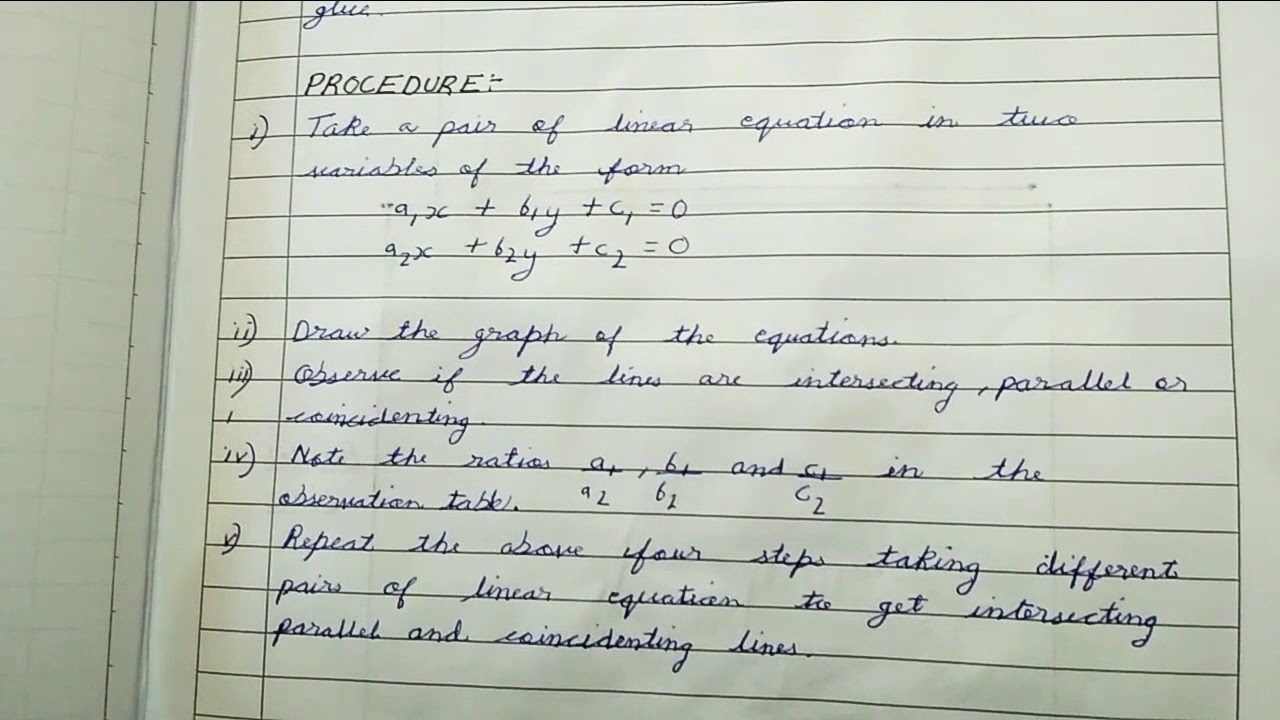 glue.
PROCEDURE:-
i) Take a pair of linear equation in two
variables of the form
a₁x + b₁y + c₁ = 0
a₂x + b₂y + c₂ = 0
ii) Draw the graph of the equations.
iii) Observe if the lines are intersecting, parallel or
coincidenting.
iv) Note the ratios a₁/a₂, b₁/b₂ and c₁/c₂ in the
observation table.
v) Repeat the above four steps taking different
pairs of linear equation to get intersecting
parallel and coincidenting lines.